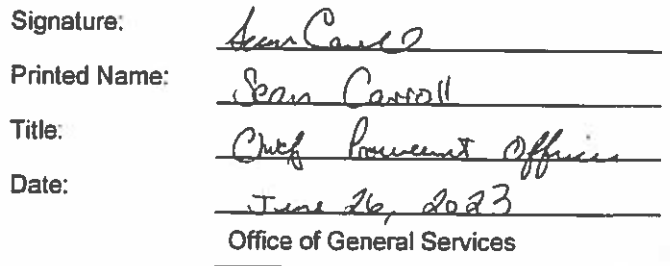 Signature: Sean Carroll
Printed Name: Sean Carroll
Title: Chief Procurement Officer
Date: June 26, 2023
Office of General Services